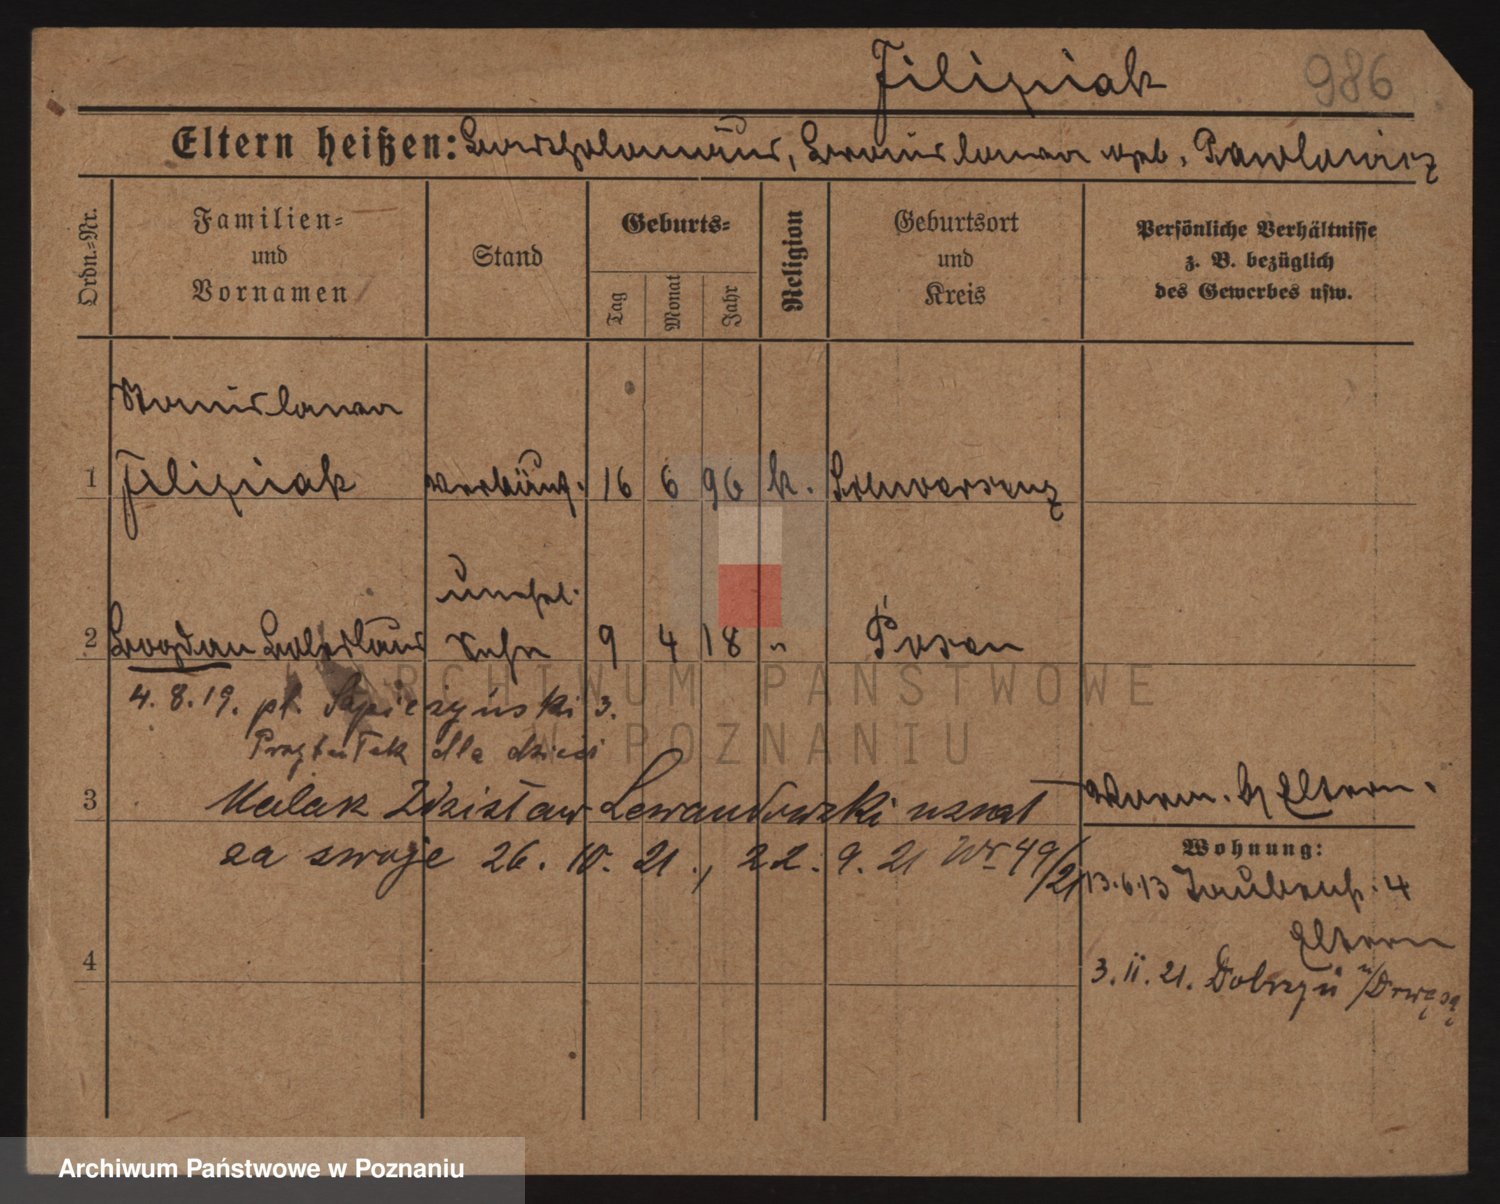 Filipiak
986
Eltern heißen: Bartholomäus, Bronislawa geb. Pawlowicz
Ordn.-Nr.
Familien-
und
Vornamen
Stand
Geburts-
Tag
Monat
Jahr
Religion
Geburtsort
und
Kreis
Persönliche Verhältnisse
z. B. bezüglich
des Gewerbes usw.
Stanislawa
1 Filipiak Verkäuf. 16 6 96 k. Schwersenz
unehel.
2 Bogdan Boleslaus Sohn 9 4 18 " Posen
4. 8. 19. pl. Sapieżyński 3.
Przytułek dla dzieci
3
Zdzisław Lewandowski uznał
za swoje 26. 10. 21., 22. 9. 21 Nr 49/21
Eltern.
Wohnung:
13.6.13 Taubenst. 4
Eltern
3. II. 21. Dobrzyń n/Drwęcą
4
ARCHIWUM PAŃSTWOWE
W POZNANIU
Archiwum Państwowe w Poznaniu